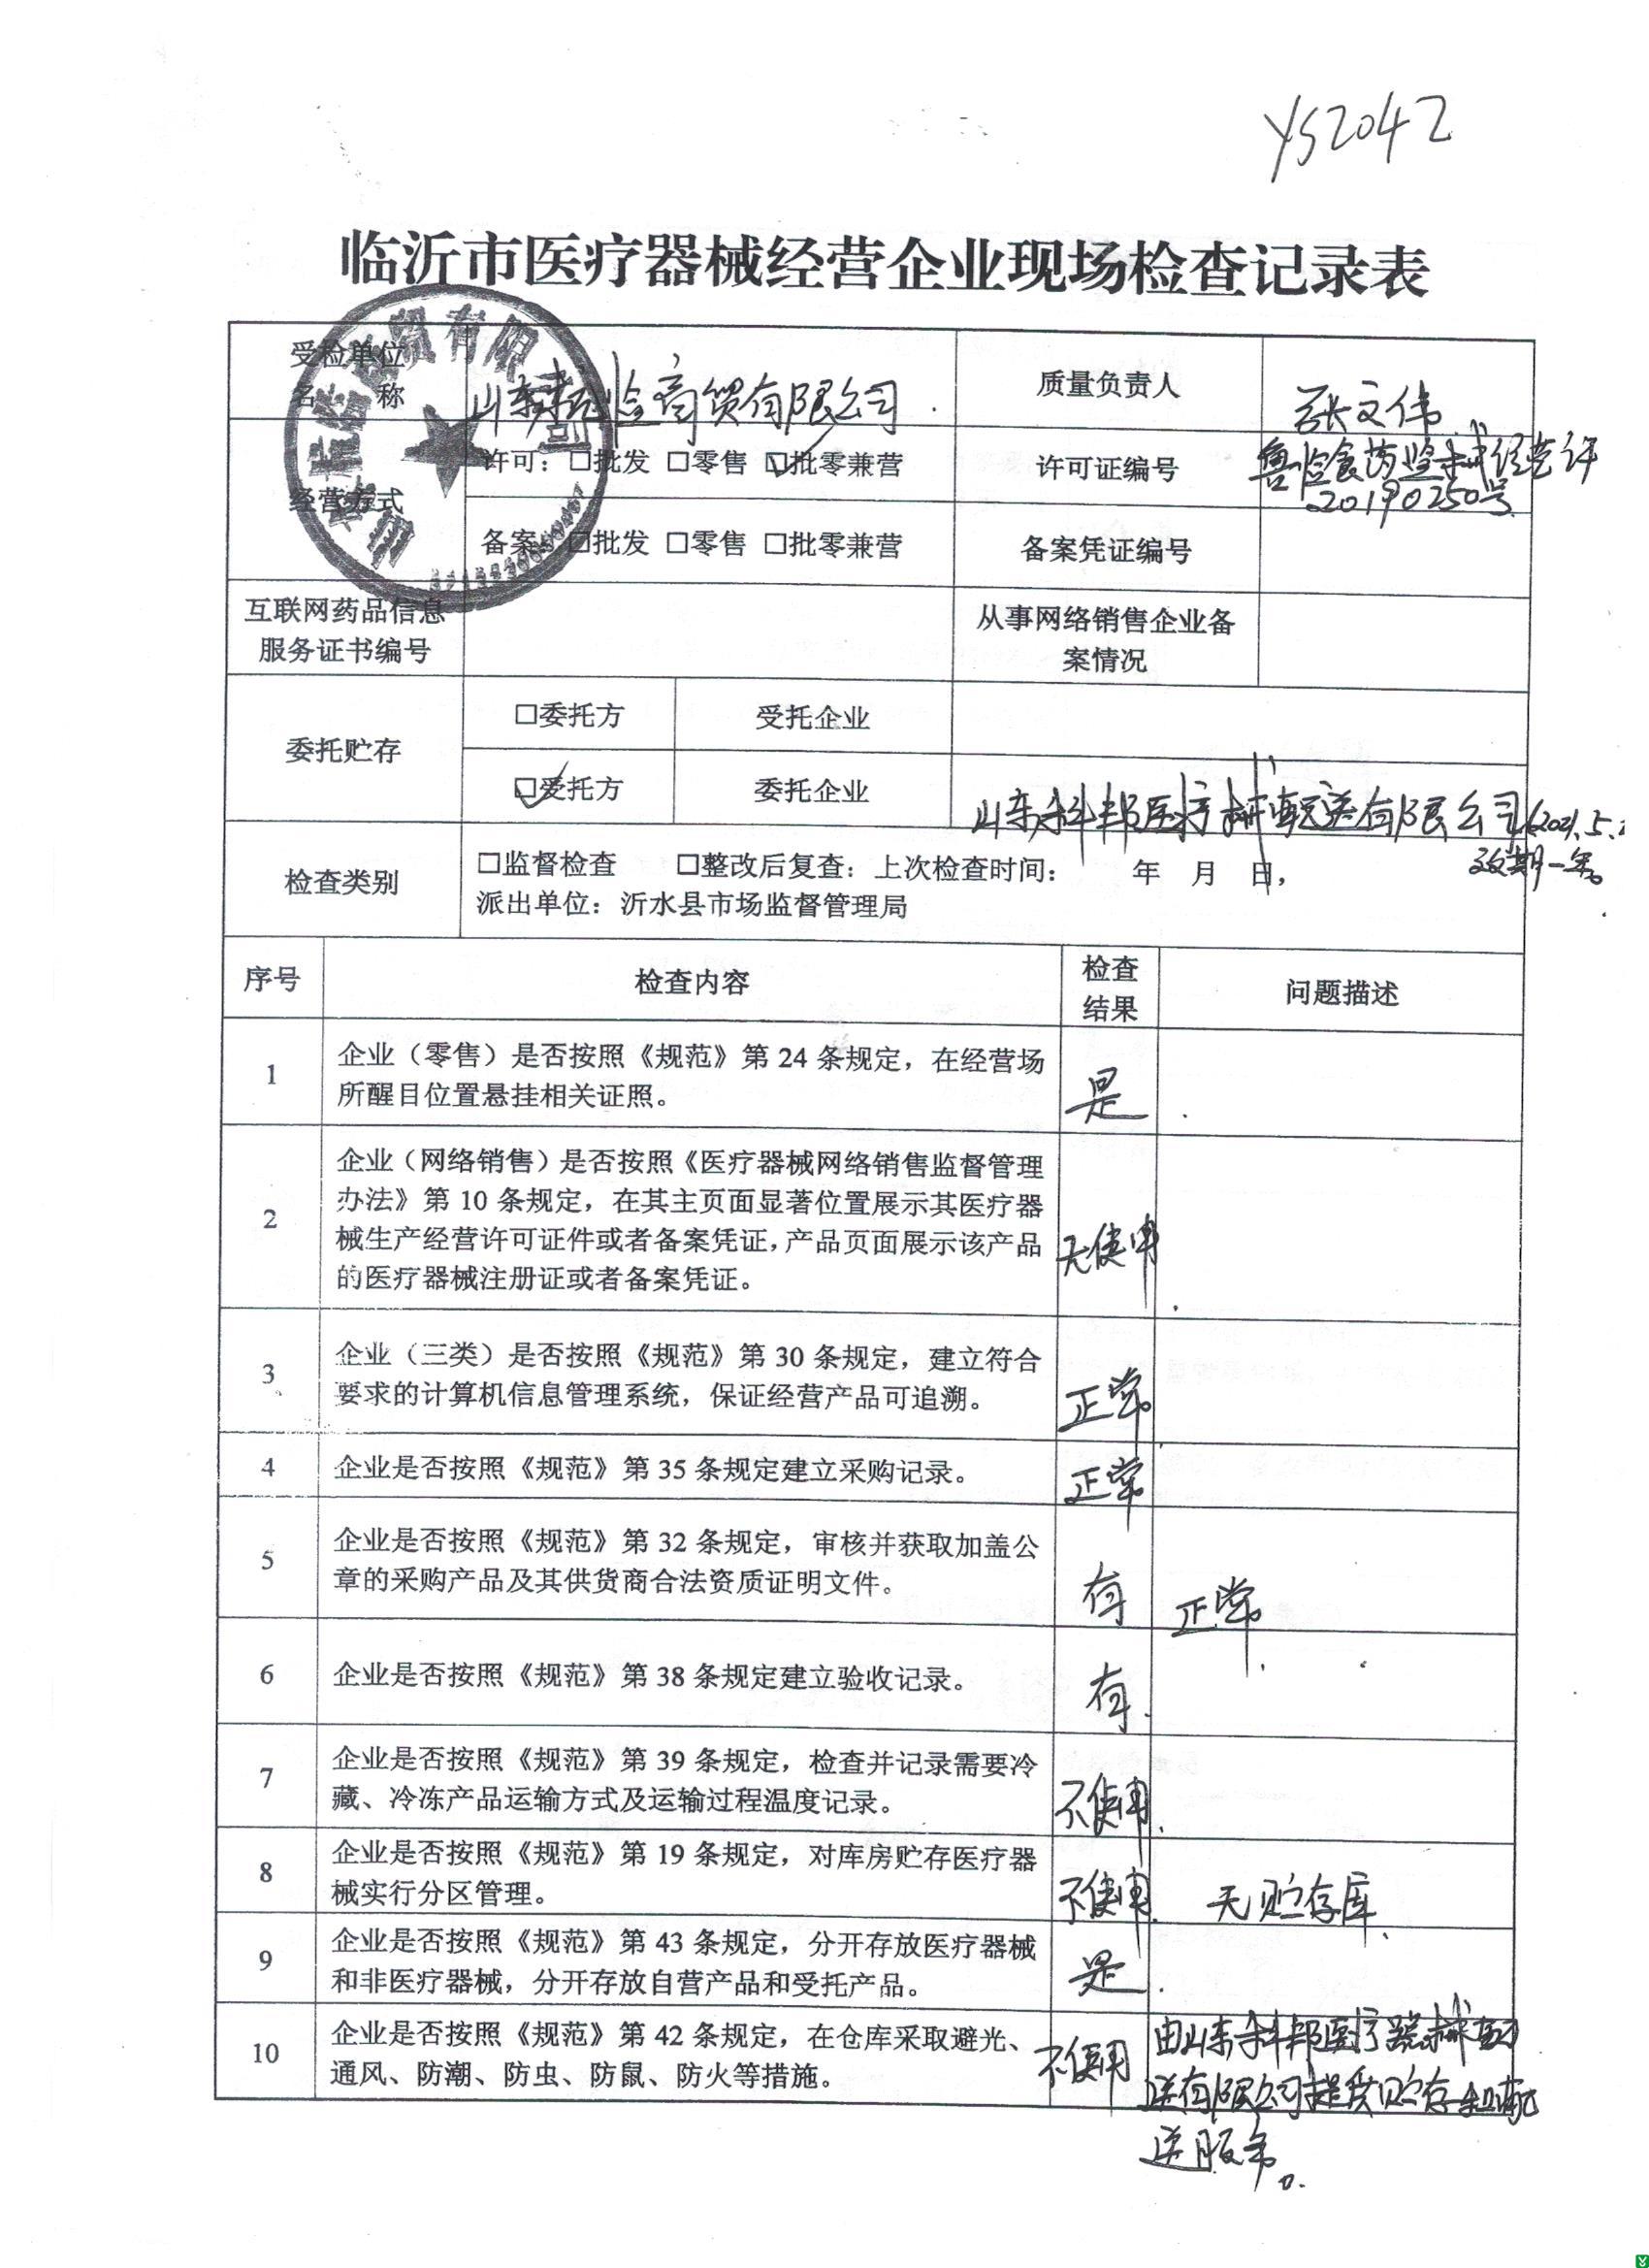 YS2042
临沂市医疗器械经营企业现场检查记录表
受检单位
名 称
山东 商贸有限公司
质量负责人
张文伟
经营方式
许可：☐批发 ☐零售 ☑批零兼营
许可证编号
鲁临食药监械经营许
20190250号
备案：☐批发 ☐零售 ☐批零兼营
备案凭证编号
互联网药品信息
服务证书编号
从事网络销售企业备
案情况
委托贮存
☐委托方
受托企业
☑受托方
委托企业
山东科邦医疗 械配送有限公司（2021.5.
效期一年。
检查类别
☐监督检查 ☐整改后复查：上次检查时间： 年 月 日，
派出单位：沂水县市场监督管理局
序号
检查内容
检查
结果
问题描述
1
企业（零售）是否按照《规范》第 24 条规定，在经营场
所醒目位置悬挂相关证照。
是.
2
企业（网络销售）是否按照《医疗器械网络销售监督管理
办法》第 10 条规定，在其主页面显著位置展示其医疗器
械生产经营许可证件或者备案凭证，产品页面展示该产品
的医疗器械注册证或者备案凭证。
无使用.
3
企业（三类）是否按照《规范》第 30 条规定，建立符合
要求的计算机信息管理系统，保证经营产品可追溯。
正常.
4
企业是否按照《规范》第 35 条规定建立采购记录。
正常
5
企业是否按照《规范》第 32 条规定，审核并获取加盖公
章的采购产品及其供货商合法资质证明文件。
有
正常.
6
企业是否按照《规范》第 38 条规定建立验收记录。
有.
7
企业是否按照《规范》第 39 条规定，检查并记录需要冷
藏、冷冻产品运输方式及运输过程温度记录。
不使用.
8
企业是否按照《规范》第 19 条规定，对库房贮存医疗器
械实行分区管理。
不使用.
无贮存库.
9
企业是否按照《规范》第 43 条规定，分开存放医疗器械
和非医疗器械，分开存放自营产品和受托产品。
是.
10
企业是否按照《规范》第 42 条规定，在仓库采取避光、
通风、防潮、防虫、防鼠、防火等措施。
不使用
由山东科邦医疗器械配
送有限公司提供贮存和配
送服务。